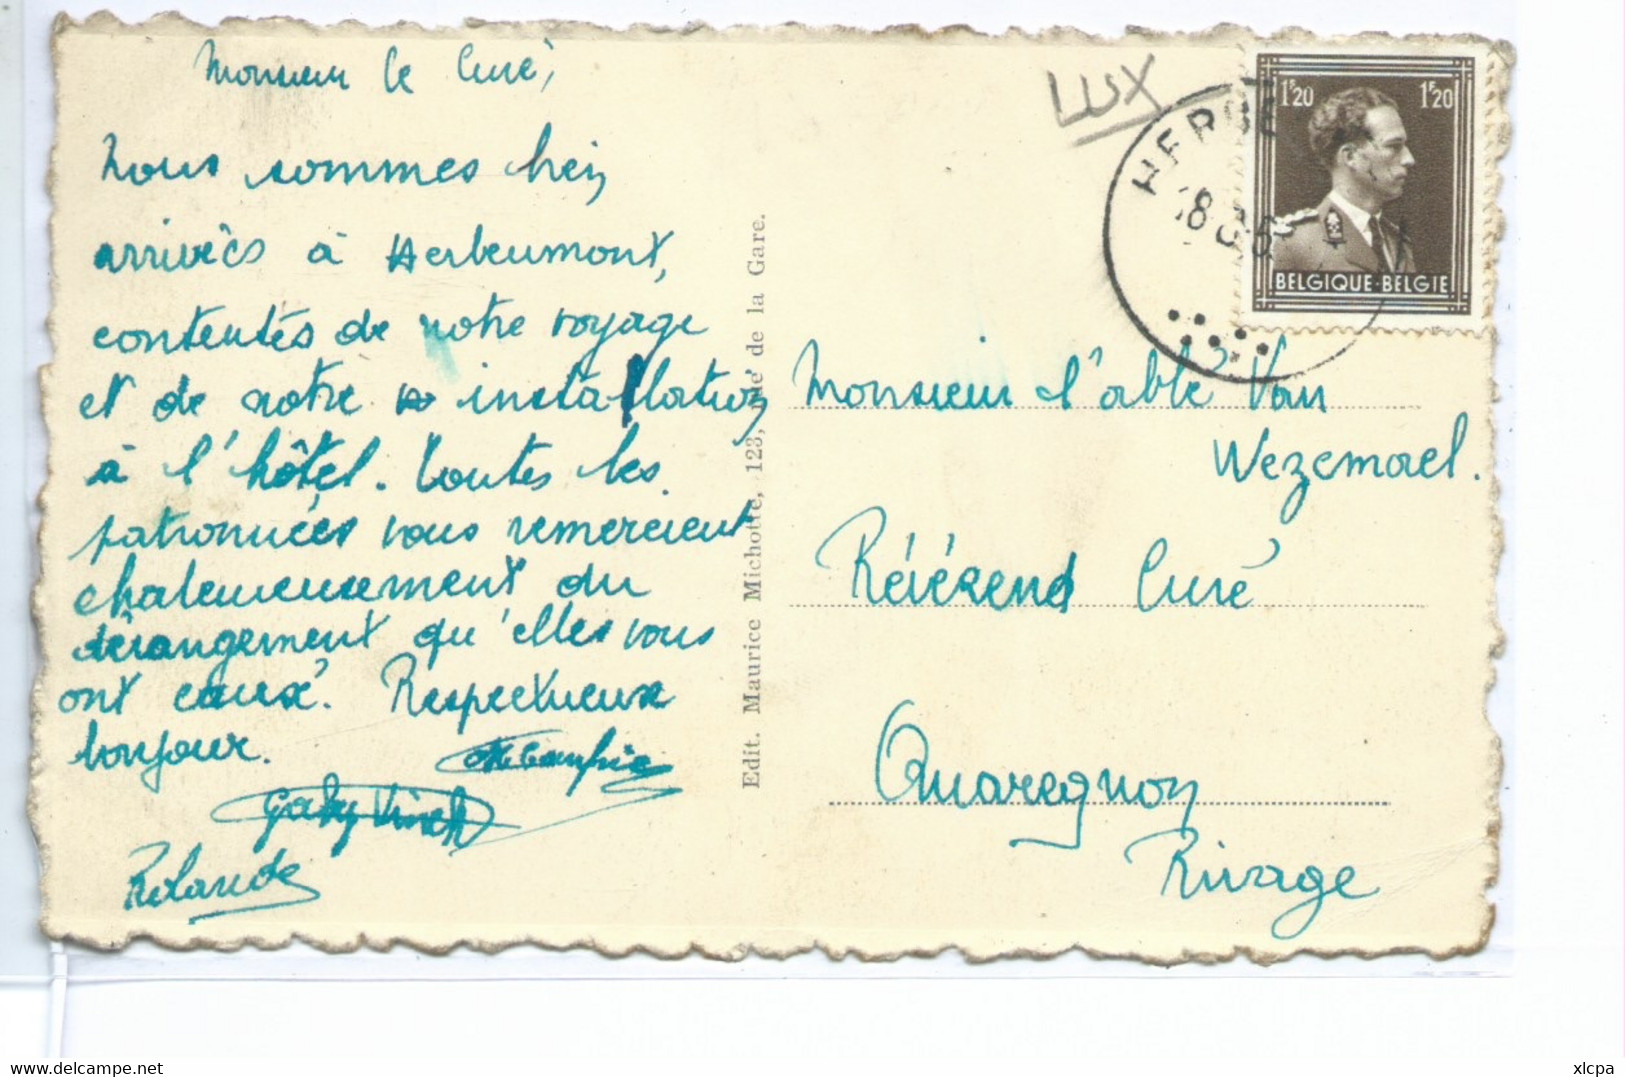 Monsieur le Curé,
Nous sommes bien
arrivées à Herbeumont,
contentés de notre voyage
et de notre installation
à l'hôtel. Toutes les
patronnées vous remercient
chaleureusement du
dérangement qu'elles vous
ont causé. Respectueux
bonjour.
Gaby Vinch
Rolande
Edit. Maurice Michotte, 123, rue de la Gare.
LUX
HERBE
1F20 1F20
BELGIQUE-BELGIE
Monsieur l'abbé Van
Wezemael.
Révérend Curé
Quaregnon
Rivage
Delcampe.net
xlcpa